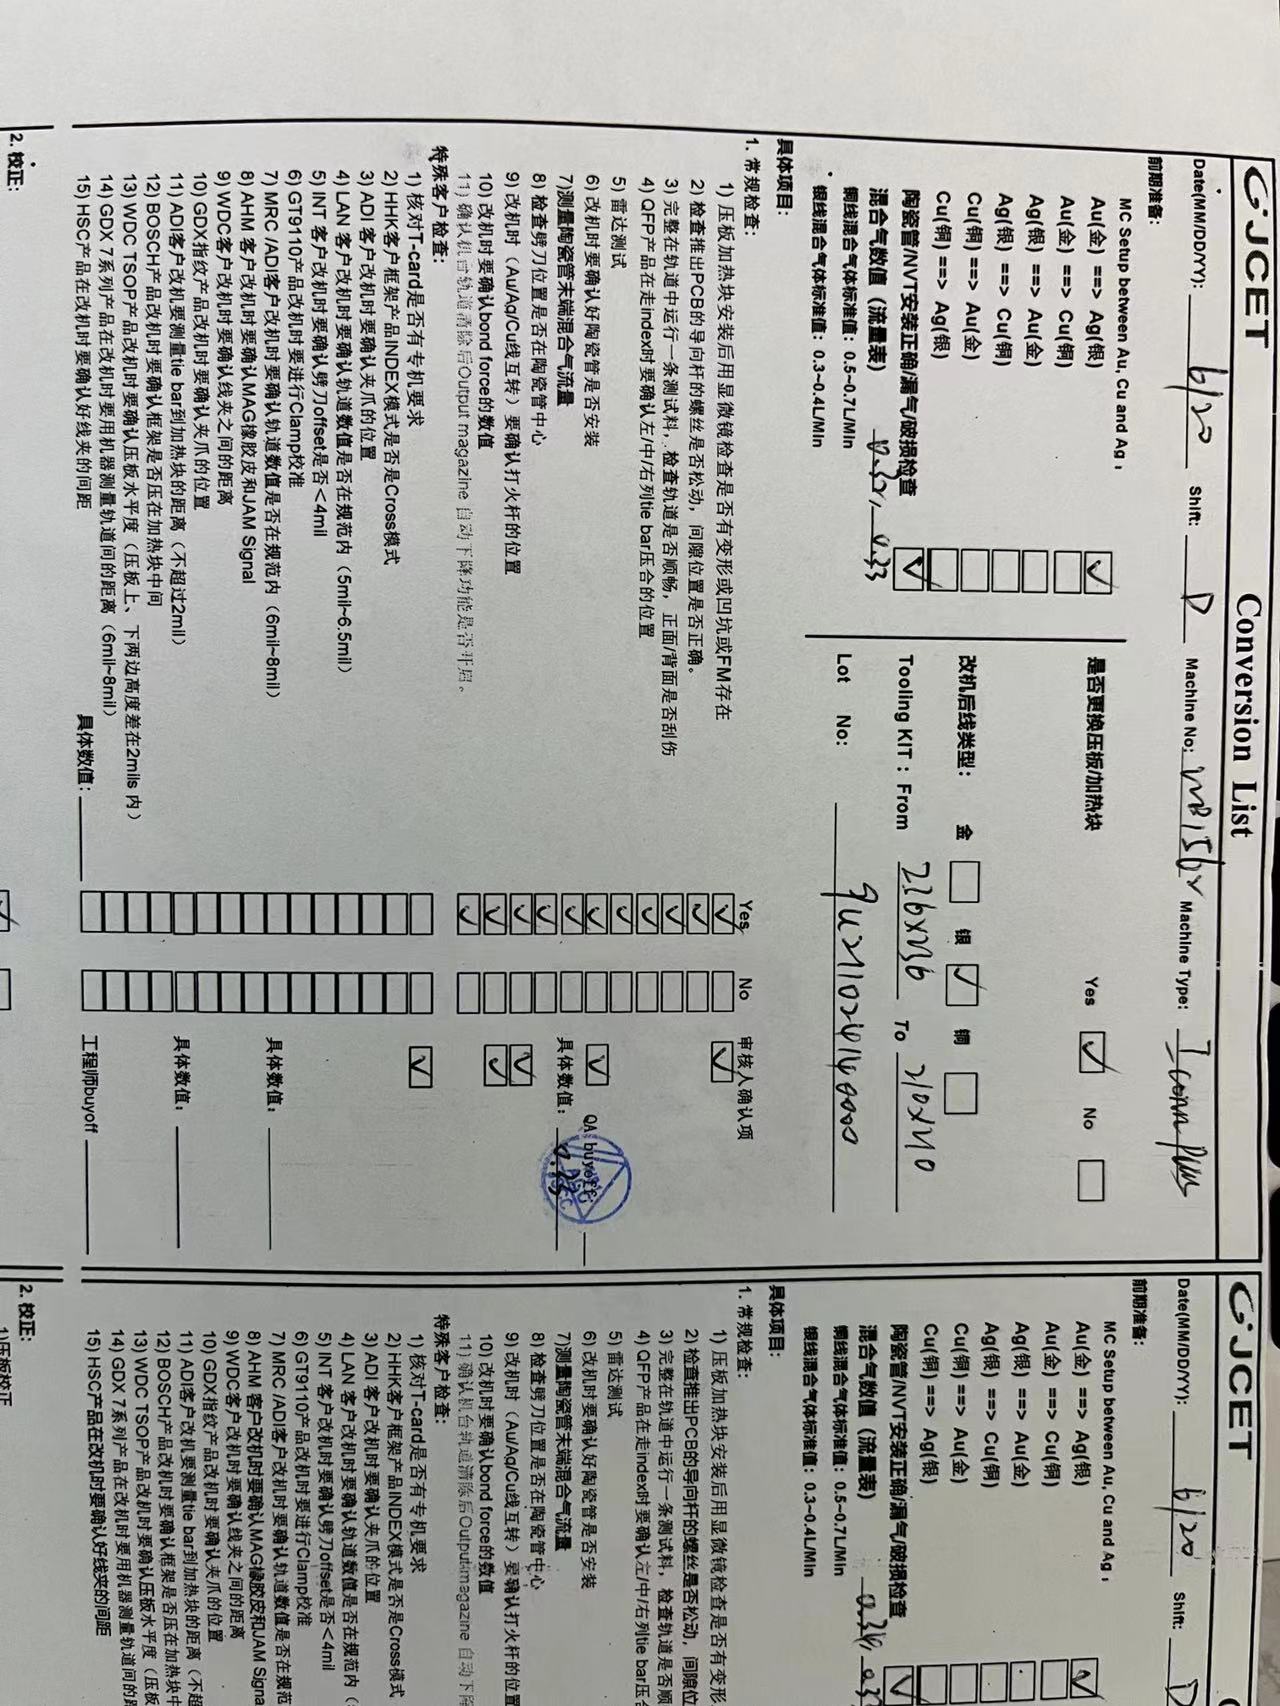 JCET
Conversion List
Date(MM/DD/YY): 6/20 Shift: D Machine No: WB156 Machine Type: I conn plus
前期准备:
MC Setup between Au, Cu and Ag :
Au(金) ==> Ag(银) ✓
Au(金) ==> Cu(铜)
Ag(银) ==> Au(金)
Ag(银) ==> Cu(铜)
Cu(铜)==> Au(金)
Cu(铜)==> Ag(银)
陶瓷管/NVT安装正确/漏气/破损检查 ✓
混合气数值（流量表） 0.32, 0.33
铜线混合气体标准值: 0.5~0.7L/Min
银线混合气体标准值: 0.3~0.4L/Min
是否更换压板/加热块 Yes ✓ No
改机后线类型: 金 银 ✓ 铜
Tooling KIT : From 236X236 To 210X210
Lot No:
具体项目:
1. 常规检查: Yes No 审核人确认项
1) 压板加热块安装后用显微镜检查是否有变形或凹坑或FM存在 ✓ ✓
2) 检查推出PCB的导向杆的螺丝是否松动，间隙位置是否正确。 ✓
3) 完整在轨道中运行一条测试料，检查轨道是否顺畅，正面/背面是否刮伤 ✓
4) QFP产品在走index时要确认左/中/右列tie bar压合的位置 ✓
5) 雷达测试 ✓
6) 改机时要确认好陶瓷管是否安装 ✓ ✓ QA buyoff:
7)测量陶瓷管末端混合气流量 ✓ 具体数值: 0.33
8) 检查劈刀位置是否在陶瓷管中心 ✓
9) 改机时（Au/Ag/Cu线互转）要确认打火杆的位置 ✓ ✓
10) 改机时要确认bond force的数值 ✓ ✓
11) 确认机台轨道清除后Output magazine 自动下降功能是否开启。 ✓
特殊客户检查:
1) 核对T-card是否有专机要求 ✓
2) HHK客户框架产品INDEX模式是否是Cross模式
3) ADI 客户改机时要确认夹爪的位置
4) LAN 客户改机时要确认轨道数值是否在规范内（5mil~6.5mil）
5) INT 客户改机时要确认劈刀offset是否＜4mil
6) GT9110产品改机时要进行Clamp校准
7) MRC /ADI客户改机时要确认轨道数值是否在规范内（6mil~8mil） 具体数值:
8) AHM 客户改机时要确认MAG橡胶皮和JAM Signal
9) WDC客户改机时要确认线夹之间的距离
10) GDX指纹产品改机时要确认夹爪的位置
11) ADI客户改机要测量tie bar到加热块的距离（不超过2mil） 具体数值:
12) BOSCH产品改机时要确认框架是否压在加热块中间
13) WDC TSOP产品改机时要确认压板水平度（压板上、下两边高度差在2mils 内）
14) GDX 7系列产品在改机时要用机器测量轨道间的距离（6mil~8mil）
15) HSC产品在改机时要确认好线夹的间距 具体数值: 工程师buyoff
2. 校正:
JCET
Date(MM/DD/YY): 6/20 Shift: D
前期准备:
MC Setup between Au, Cu and Ag :
Au(金) ==> Ag(银) ✓
Au(金) ==> Cu(铜)
Ag(银) ==> Au(金)
Ag(银) ==> Cu(铜)
Cu(铜)==> Au(金)
Cu(铜)==> Ag(银)
陶瓷管/NVT安装正确/漏气/破损检查 ✓
混合气数值（流量表） 0.34,
铜线混合气体标准值: 0.5~0.7L/Min
银线混合气体标准值: 0.3~0.4L/Min
具体项目:
1. 常规检查:
1) 压板加热块安装后用显微镜检查是否有变形
2) 检查推出PCB的导向杆的螺丝是否松动，间隙位
3) 完整在轨道中运行一条测试料，检查轨道是否顺
4) QFP产品在走index时要确认左/中/右列tie bar压合
5) 雷达测试
6) 改机时要确认好陶瓷管是否安装
7)测量陶瓷管末端混合气流量
8) 检查劈刀位置是否在陶瓷管中心
9) 改机时（Au/Ag/Cu线互转）要确认打火杆的位置
10) 改机时要确认bond force的数值
11) 确认机台轨道清除后Output magazine 自动下降
特殊客户检查:
1) 核对T-card是否有专机要求
2) HHK客户框架产品INDEX模式是否是Cross模式
3) ADI 客户改机时要确认夹爪的位置
4) LAN 客户改机时要确认轨道数值是否在规范内（
5) INT 客户改机时要确认劈刀offset是否＜4mil
6) GT9110产品改机时要进行Clamp校准
7) MRC /ADI客户改机时要确认轨道数值是否在规范
8) AHM 客户改机时要确认MAG橡胶皮和JAM Signa
9) WDC客户改机时要确认线夹之间的距离
10) GDX指纹产品改机时要确认夹爪的位置
11) ADI客户改机要测量tie bar到加热块的距离（不超
12) BOSCH产品改机时要确认框架是否压在加热块中
13) WDC TSOP产品改机时要确认压板水平度（压板
14) GDX 7系列产品在改机时要用机器测量轨道间的距
15) HSC产品在改机时要确认好线夹的间距
2. 校正:
1)压板校正